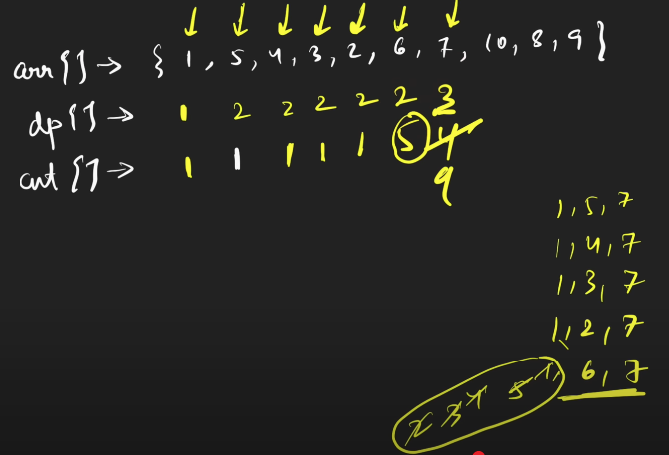 arr[] → { 1, 5, 4, 3, 2, 6, 7, 10, 8, 9 }
dp[] → 1 2 2 2 2 2 3
cnt[] → 1 1 1 1 1 5 4
9
1, 5, 7
1, 4, 7
1, 3, 7
1, 2, 7
6, 7